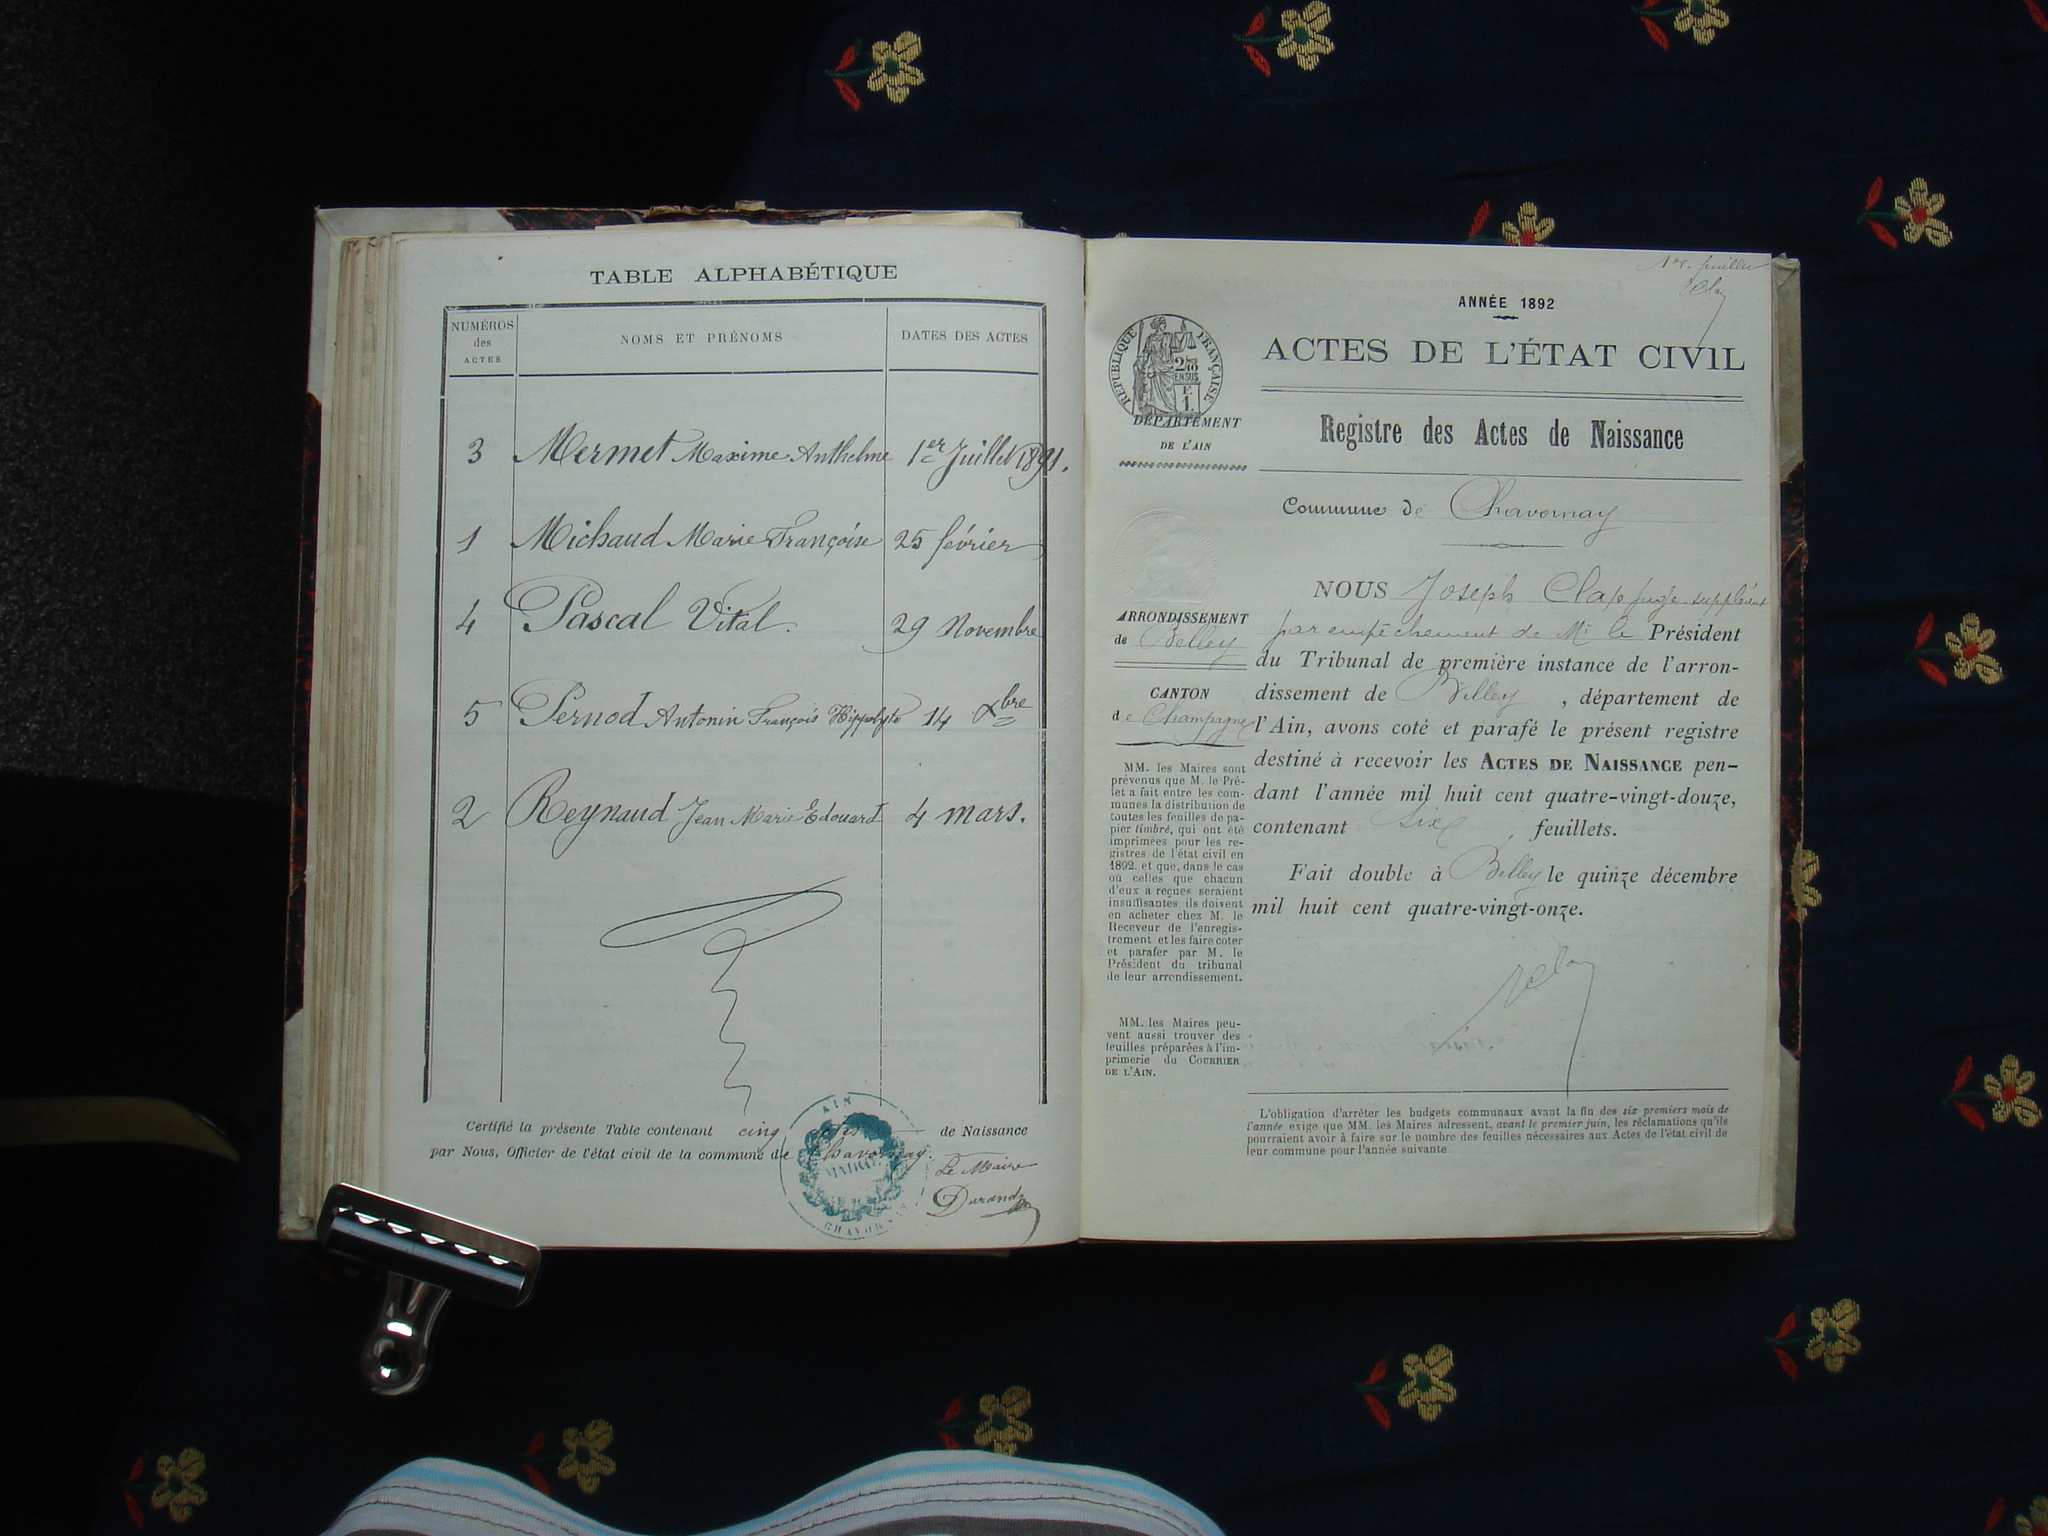 TABLE ALPHABÉTIQUE
NUMÉROS
des
ACTES
NOMS ET PRÉNOMS
DATES DES ACTES
3 Mermet Maxime Anthelme 1er Juillet 1891.
1 Michaud Marie Françoise 25 février
4 Pascal Vital. 29 Novembre
5 Pernod Antonin François Hippolyte 14 Xbre
2 Reynaud Jean Marie Edouard 4 mars.
Certifié la présente Table contenant cinq actes de Naissance
par Nous, Officier de l'état civil de la commune de Chavornay.
Le Maire
Durand
AIN
MAIRIE
CHAVORNAY
1er feuillet
ANNÉE 1892
ACTES DE L'ÉTAT CIVIL
Registre des Actes de Naissance
Commune de Chavornay
RÉPUBLIQUE FRANÇAISE
2/10
EN SUS
F.
1.
DÉPARTEMENT
DE L'AIN
ARRONDISSEMENT
de Belley
CANTON
de Champagne
MM. les Maires sont
prévenus que M. le Pré-
fet a fait entre les com-
munes la distribution de
toutes les feuilles de pa-
pier timbré, qui ont été
imprimées pour les re-
gistres de l'état civil en
1892, et que, dans le cas
où celles que chacun
d'eux a reçues seraient
insuffisantes, ils doivent
en acheter chez M. le
Receveur de l'enregis-
trement et les faire coter
et parafer par M. le
Président du tribunal
de leur arrondissement.
MM. les Maires peu-
vent aussi trouver des
feuilles préparées à l'im-
primerie du COURRIER
DE L'AIN.
NOUS Joseph juge suppléant
par empêchement de Mr le Président
du Tribunal de première instance de l'arron-
dissement de Belley, département de
l'Ain, avons coté et parafé le présent registre
destiné à recevoir les ACTES DE NAISSANCE pen-
dant l'année mil huit cent quatre-vingt-douze,
contenant six, feuillets.
Fait double à Belley le quinze décembre
mil huit cent quatre-vingt-onze.
L'obligation d'arrêter les budgets communaux avant la fin des six premiers mois de
l'année exige que MM. les Maires adressent, avant le premier juin, les réclamations qu'ils
pourraient avoir à faire sur le nombre des feuilles nécessaires aux Actes de l'état civil de
leur commune pour l'année suivante